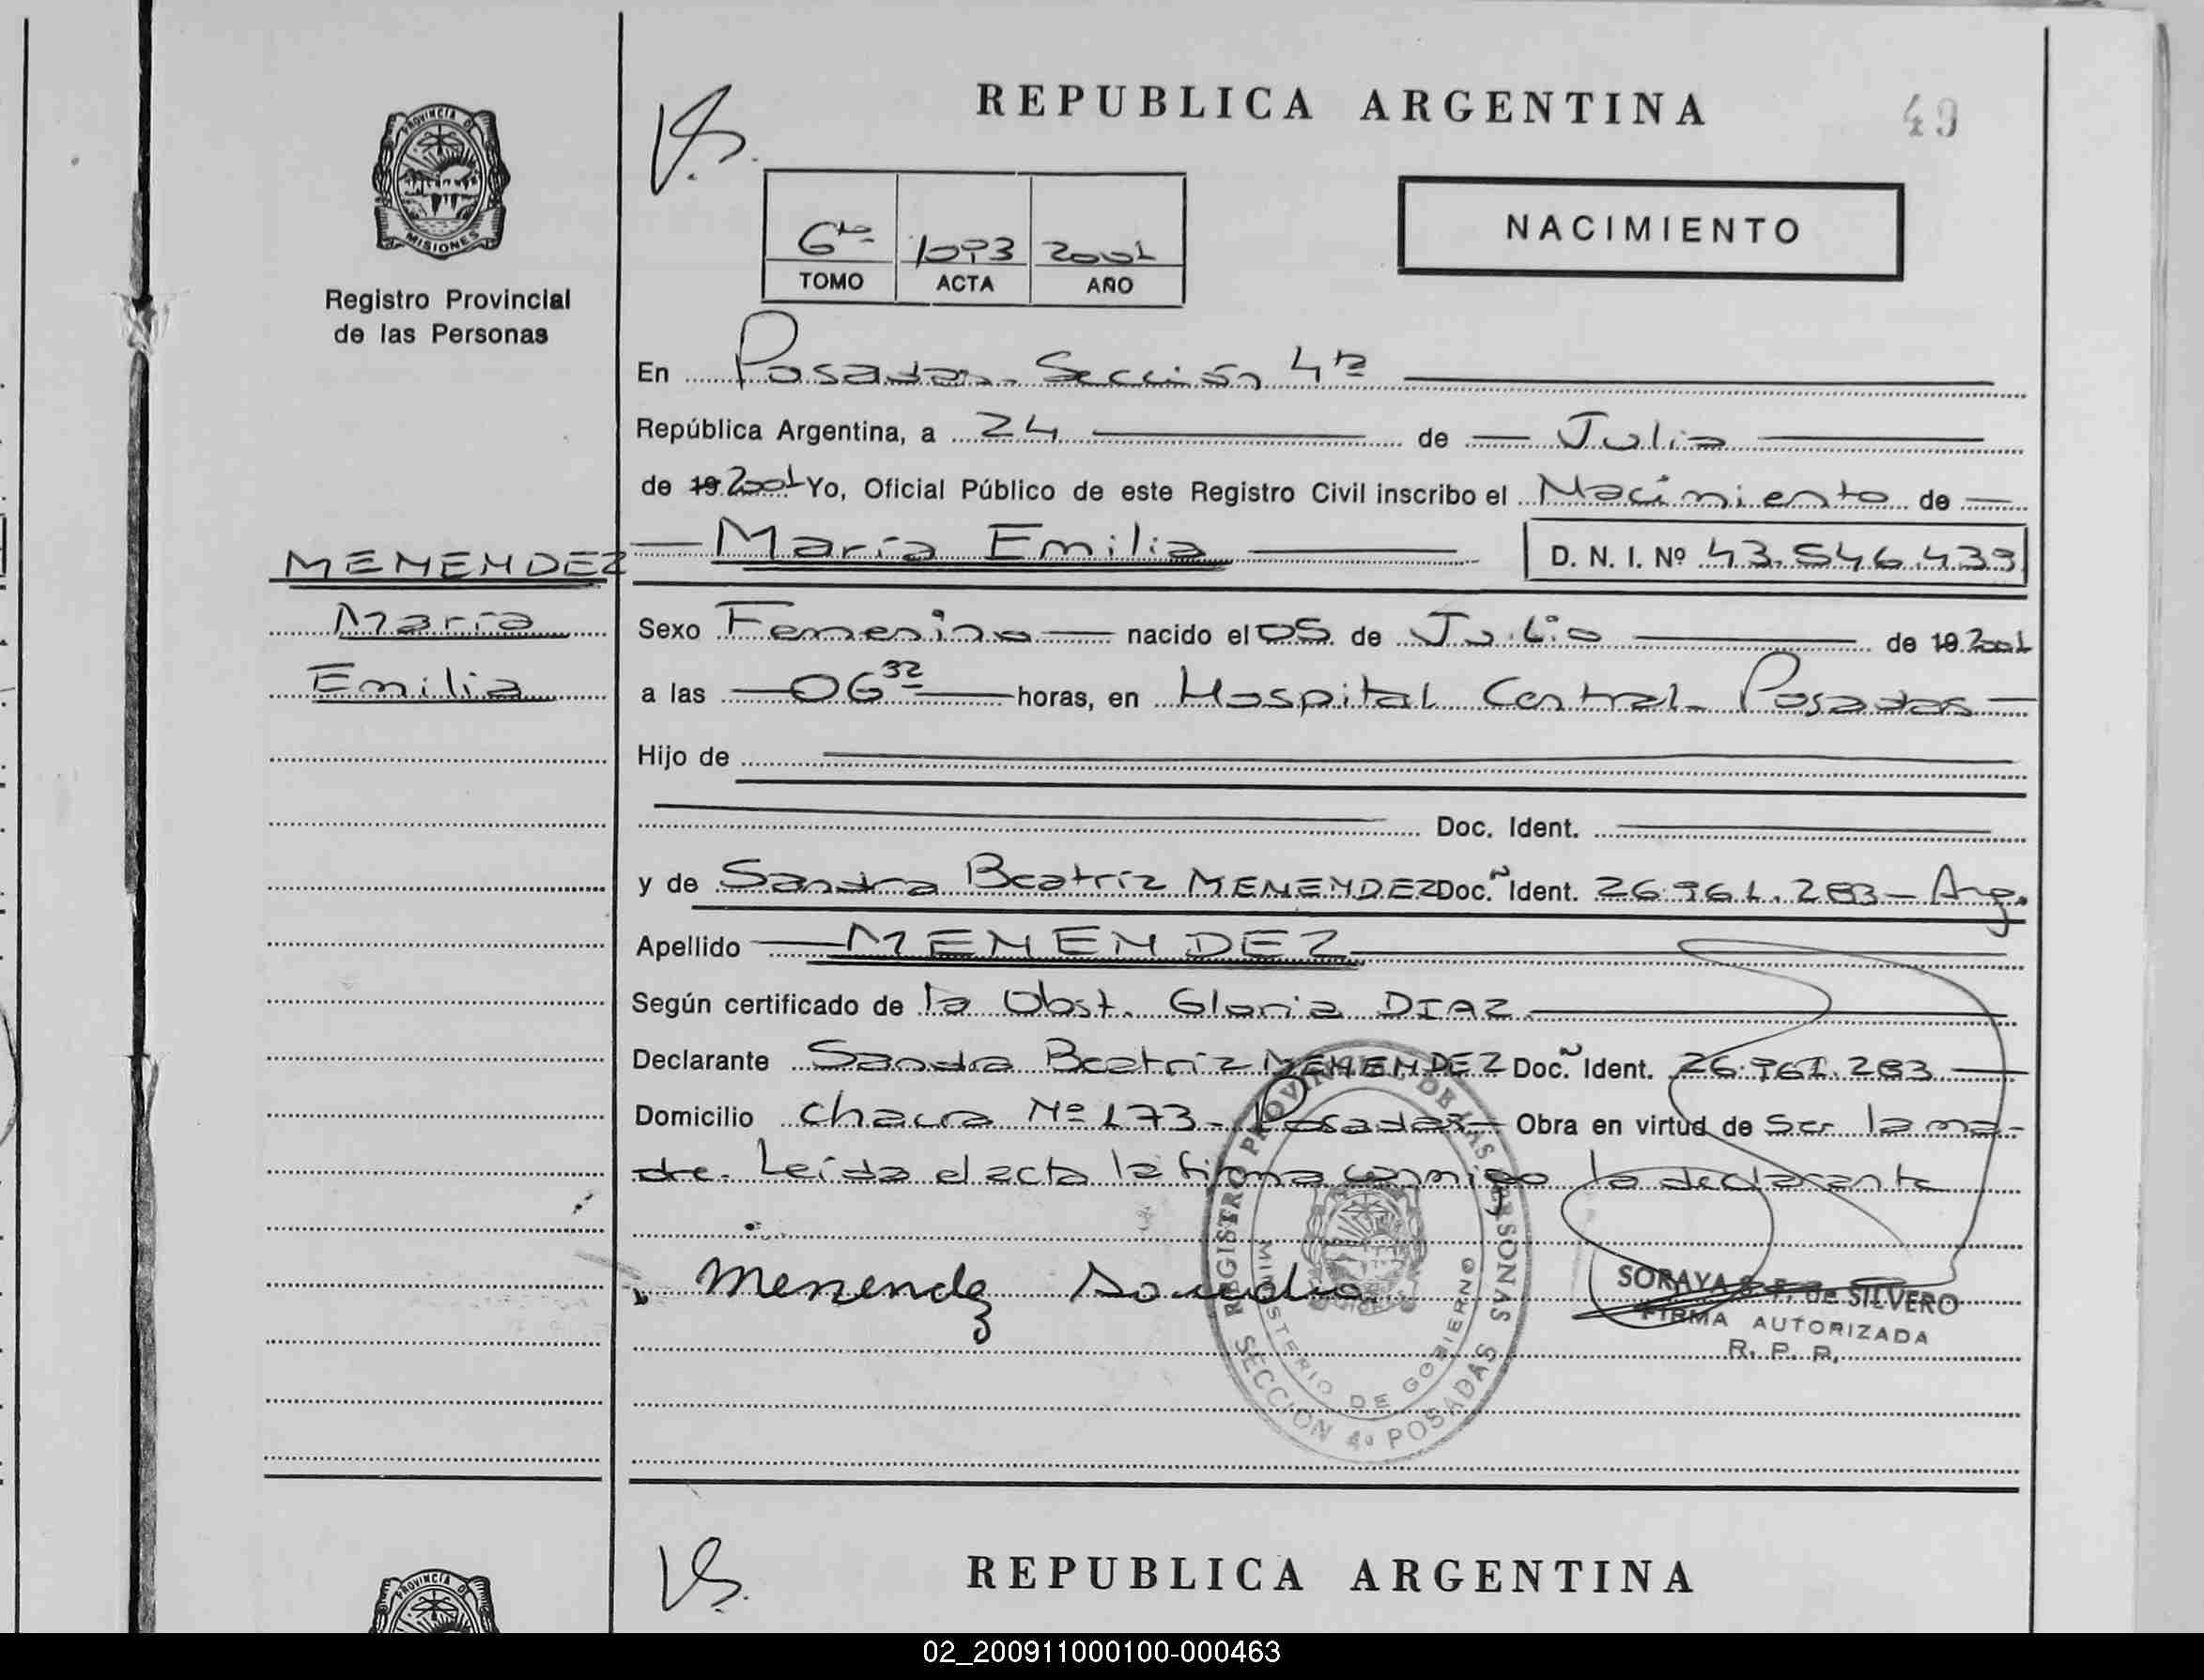 PROVINCIA DE
MISIONES
Registro Provincial
de las Personas
MENENDEZ
María
Emilia
REPUBLICA ARGENTINA
49
6to
1093
2001
TOMO
ACTA
AÑO
NACIMIENTO
En Posadas - Sección 4ta
República Argentina, a 24 de Julio
de 19 2001 Yo, Oficial Público de este Registro Civil inscribo el Nacimiento de
María Emilia D. N. I. Nº 43.546.439
Sexo Femenino nacido el 05 de Julio de 19 2001
a las 06 32 horas, en Hospital Central - Posadas
Hijo de
Doc. Ident.
y de Sandra Beatriz MENENDEZ Doc. Ident. 26.961.283 - Arg.
Apellido MENENDEZ
Según certificado de la Obst. Gloria DIAZ
Declarante Sandra Beatriz MENENDEZ Doc. Ident. 26.961.283
Domicilio Chacra Nº 173 - Posadas - Obra en virtud de Ser la ma-
dre. Leída el acta la firma conmigo la declarante
Menendez Sandra
REGISTRO PROVINCIAL DE LAS PERSONAS
SECCION 4ª POSADAS
MINISTERIO DE GOBIERNO
SORAYA de SILVERO
FIRMA AUTORIZADA
R. P. P.
PROVINCIA DE
REPUBLICA ARGENTINA
02_200911000100-000463